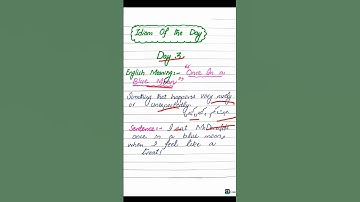 Idiom Of the Day
Day 3
English Meaning:- "Once In a
Blue Moon"
Something that happens very rarely
or unexpectedly.
Sentence:- I eat McDonalds
once in a blue moon,
when I feel like a
treat!